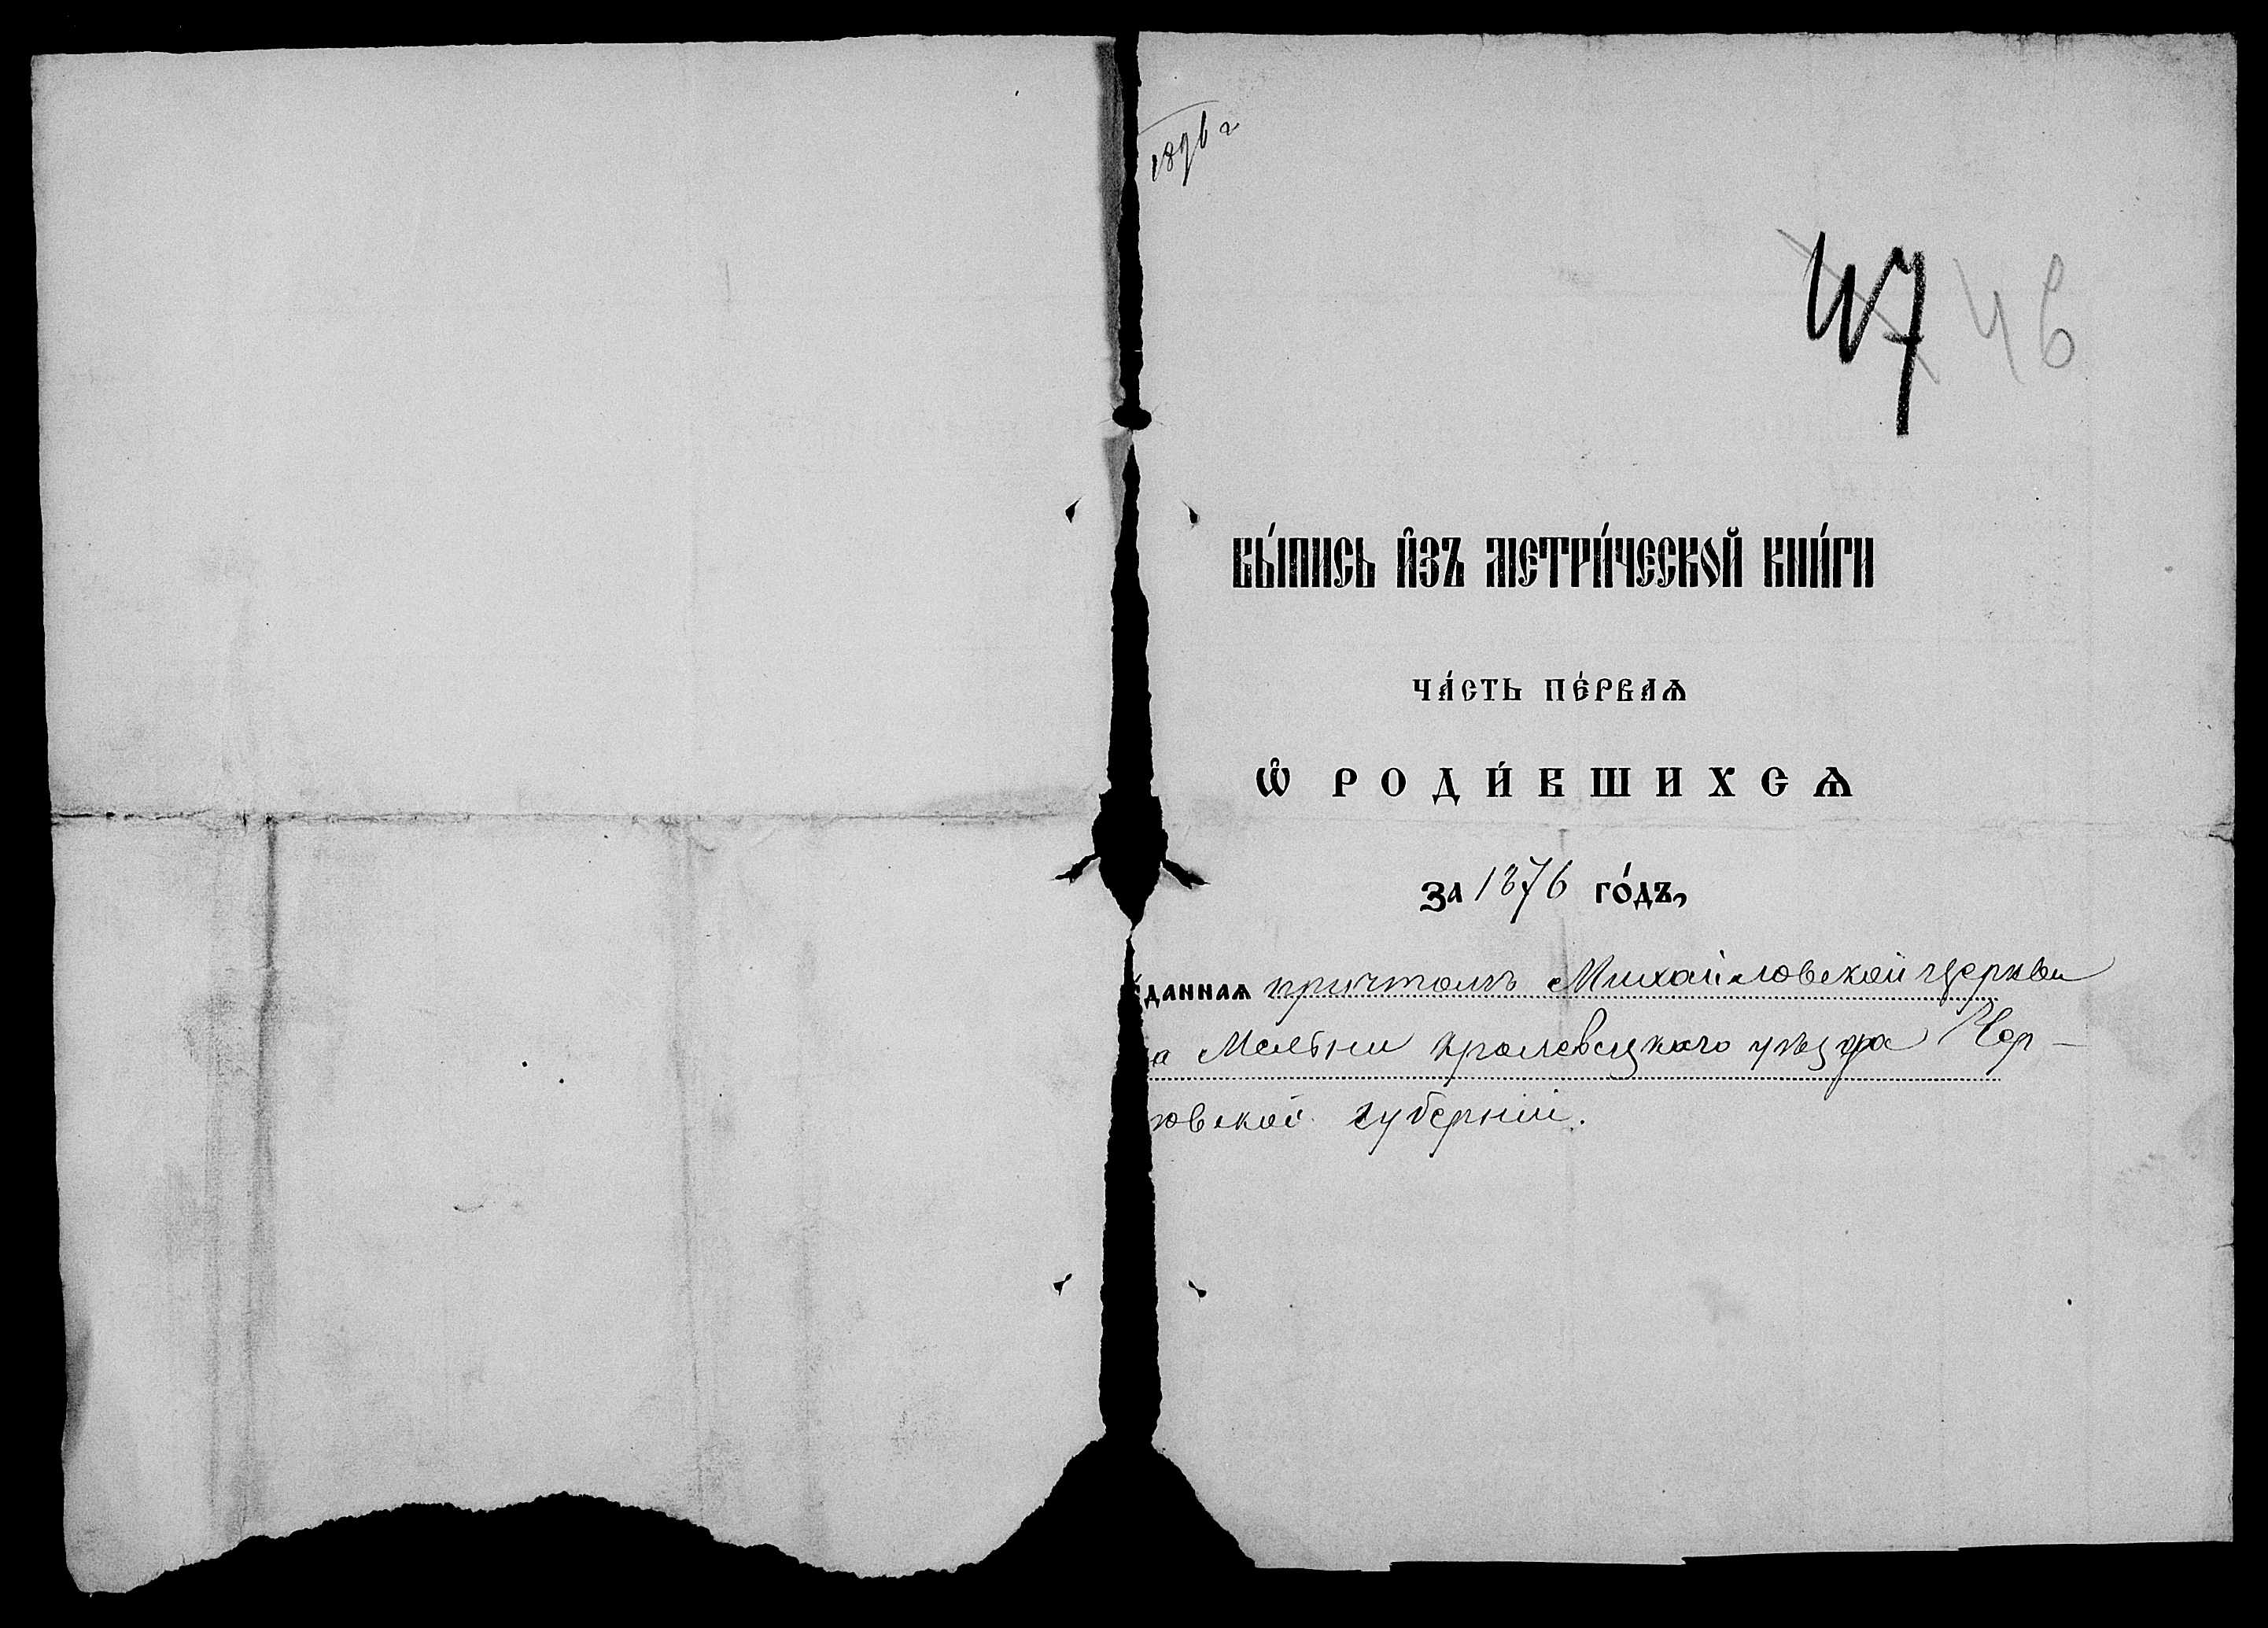 1896 г
47 46
Вы́пись и҆зъ метри́ческой кни́ги
ча́сть пе́рваѧ
Ѡ҆ роди́вшихсѧ
за 1876 го́дъ,
даннаѧ причтомъ Михайловской церкви
а Мельни Кролевецкаго уѣзда Чер-
говской губерніи.